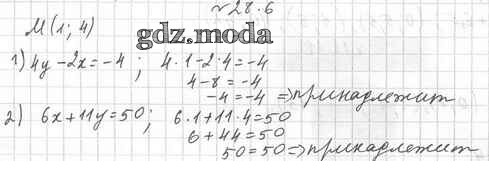 №28.6
М(1; 4)
gdz.moda
1) 4y-2x=-4; 4·1-2·4=-4
4-8=-4
-4=-4 ⇒ принадлежит
2) 6x+11y=50; 6·1+11·4=50
6+44=50
50=50 ⇒ принадлежит